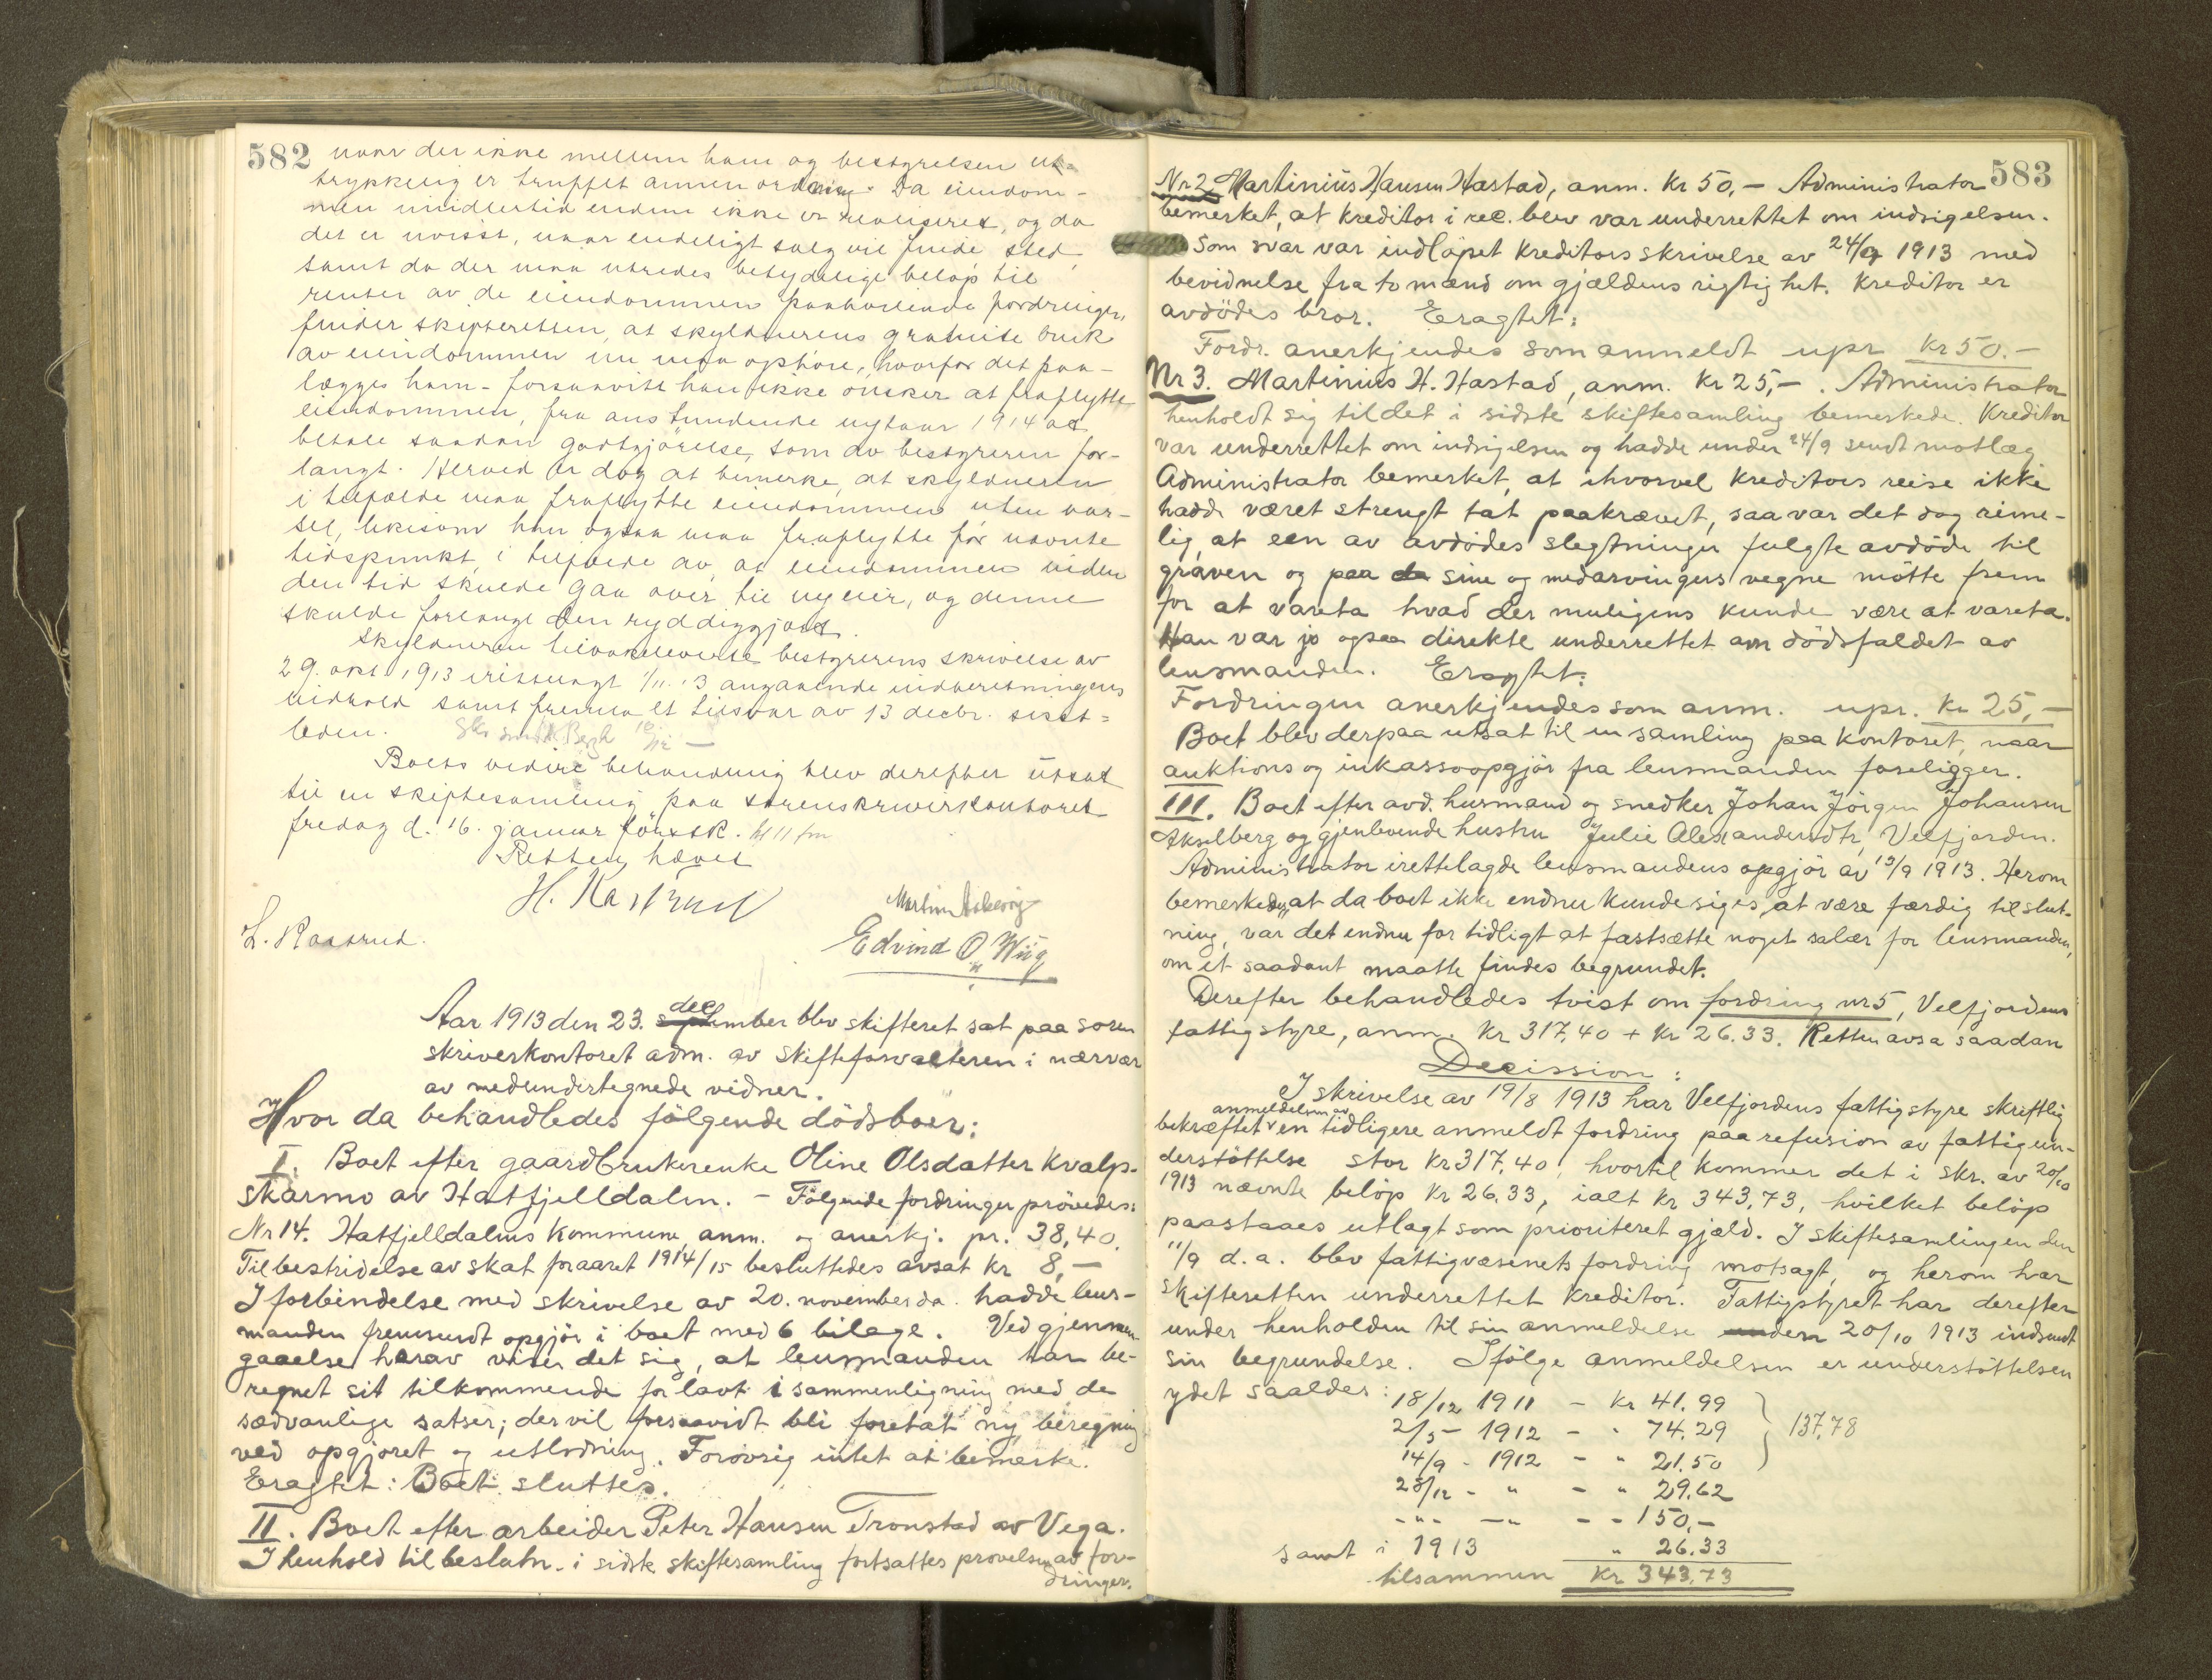 582
naar der ikke mellem ham og bestyrelsen ut-
trykkelig er truffet annen ordning. Da eiendom-
men imidlertid endnu ikke er realiseret, og da
det er uvisst, naar endeligt salg vil finde sted,
samt da der maa utredes betydelige beløp til
renter av de eiendommen paahvilende fordringer,
finder skifteretten, at skyldnerens gratuite bruk
av eiendommen nu maa ophøre, hvorfor det paa-
lægges ham - forsaavitt han ikke ønsker at fraflytte
eiendommen, fra anstundende nytaar 1914 at
betale saadan godtgjörelse, som av bestyreren for-
langt. Herved er dog at bemerke, at skyldneren
i tilfælde maa fraflytte eiendommen uten var-
sel, likesom han ogsaa maa fraflytte før nævnte
tidspunkt, i tilfælde av, at eiendommen inden
den tid skulde gaa over til ny eier, og denne
skulde forlange den ryddiggjort.
Skyldneren tilbakeleverte bestyrerens skrivelse av
29. okt 1913 irettelagt 1/11.13 angaaende indberetningens
indhold samt fremla et tilsvar av 13 decbr. sisst-
leden.
Boets videre behandling blev derefter utsat
til en skiftesamling paa sorenskriverkontoret
fredag d. 16. januar förstk. kl 11 fm
Retten hævet
H. Kastrud
Martin Aakerøy
L. Kastrud.
Edvind O. Wiig
Aar 1913 den 23. september dec blev skifteret sat paa soren
skriverkontoret adm. av skifteforvalteren i nærvær
av medundertegnede vidner.
Hvor da behandledes fölgende dödsboer:
I. Boet efter gaardbrukerenke Oline Olsdatter Kvalp-
skarmo av Hatfjelldalen. - Fölgende fordringer prövedes:
Nr 14. Hatfjelldalens kommune, anm. og anerkj. pr. 38,40.
Til bestridelse av skat for aaret 1914/15 besluttedes avsat kr 8,-
I forbindelse med skrivelse av 20. november d.a. hadde lens-
manden fremsendt opgjör i boet med 6 bilage. Ved gjennem-
gaaelse herav viser det sig, at lensmanden har be-
regnet sit tilkommende for lavt i sammenligning med de
sædvanlige satser; der vil forsaavidt bli foretat ny beregning
ved opgjøret og utlodning. Forövrig intet at bemerke.
Eragtet: Boet sluttes.
II. Boet efter arbeider Peter Hansen Tronstad av Vega.
I henhold til beslutn. i sidste skiftesamling fortsattes prøvelsen av for-
dringer.
583
Nr 2 Martinius Hansen Hastad, anm. kr 50,- Administrator
bemerket, at kreditor i rec. brev var underrettet om indsigelsen.
Som svar var indlöpet kreditors skrivelse av 24/9 1913 med
bevidnelse fra to mænd om gjældens rigtighet. Kreditor er
avdödes bror. Eragtet:
Fordr. anerkjendes som anmeldt upr kr 50.-
Nr 3. Martinius H. Hastad, anm. kr 25,-. Administrator
henholdt sig til det i sidste skiftesamling bemerkede. Kreditor
var underrettet om indsigelsen og hadde under 24/9 sendt motlæg
Administrator bemerket, at ihvorvel kreditors reise ikke
hadde været strengt tat paakrævet, saa var det dog rime-
lig, at een av avdödes slegtninger fulgte avdöde til
graven og paa da sine og medarvingers vegne mötte frem
for at vareta hvad der muligens kunde være at vareta.
Han var jo ogsaa direkte underrettet om dödsfaldet av
lensmanden. Eragtet:
Fordringen anerkjendes som anm. upr. kr 25,-
Boet blev derpaa utsat til en samling paa kontoret, naar
auktions og inkassoopgjör fra lensmanden foreligger.
III. Boet efter avd. husmand og snedker Johan Jörgen Johansen
Akselberg og gjenlevende hustru Julie Alexandersdtr, Velfjorden.
Administrator irettelagde lensmandens opgjör av 19/9 1913. Herom
bemerkedes, at da boet ikke endnu kunde siges at være færdig til slut-
ning, var det endnu for tidligt at fastsætte noget salær for lensmanden,
om et saadant maatte findes begrundet.
Derefter behandledes tvist om fordring nr 5, Velfjordens
fattigstyre, anm. kr 317,40 + kr 26.33. Retten avsa saadan
Decission:
I skrivelse av 19/8 1913 har Velfjordens fattigstyre skriftlig
bekræftet anmeldelsen av en tidligere anmeldt fordring paa refusion av fattigun-
derstöttelse stor kr 317,40, hvortil kommer det i skr. av 20/10
1913 nævnte belöp kr 26.33, ialt kr 343,73, hvilket belöp
paastaaes utlagt som prioriteret gjæld. I skiftesamlingen den
11/9 d.a. blev fattigvæsenets fordring motsagt, og herom har
skifteretten underrettet kreditor. Fattigstyret har derefter
under henholden til sin anmeldelse under 20/10 1913 indsendt
sin begrundelse. Ifölge anmeldelsen er understöttelsen
ydet saaledes:
18/12 1911 - kr 41.99
2/5 - 1912 - " 74.29
14/9 - 1912 - " 21.50
137,78
28/12 - " - " 29.62
-"- -" - - 150,-
samt i 1913 " 26.33
tilsammen kr 343,73